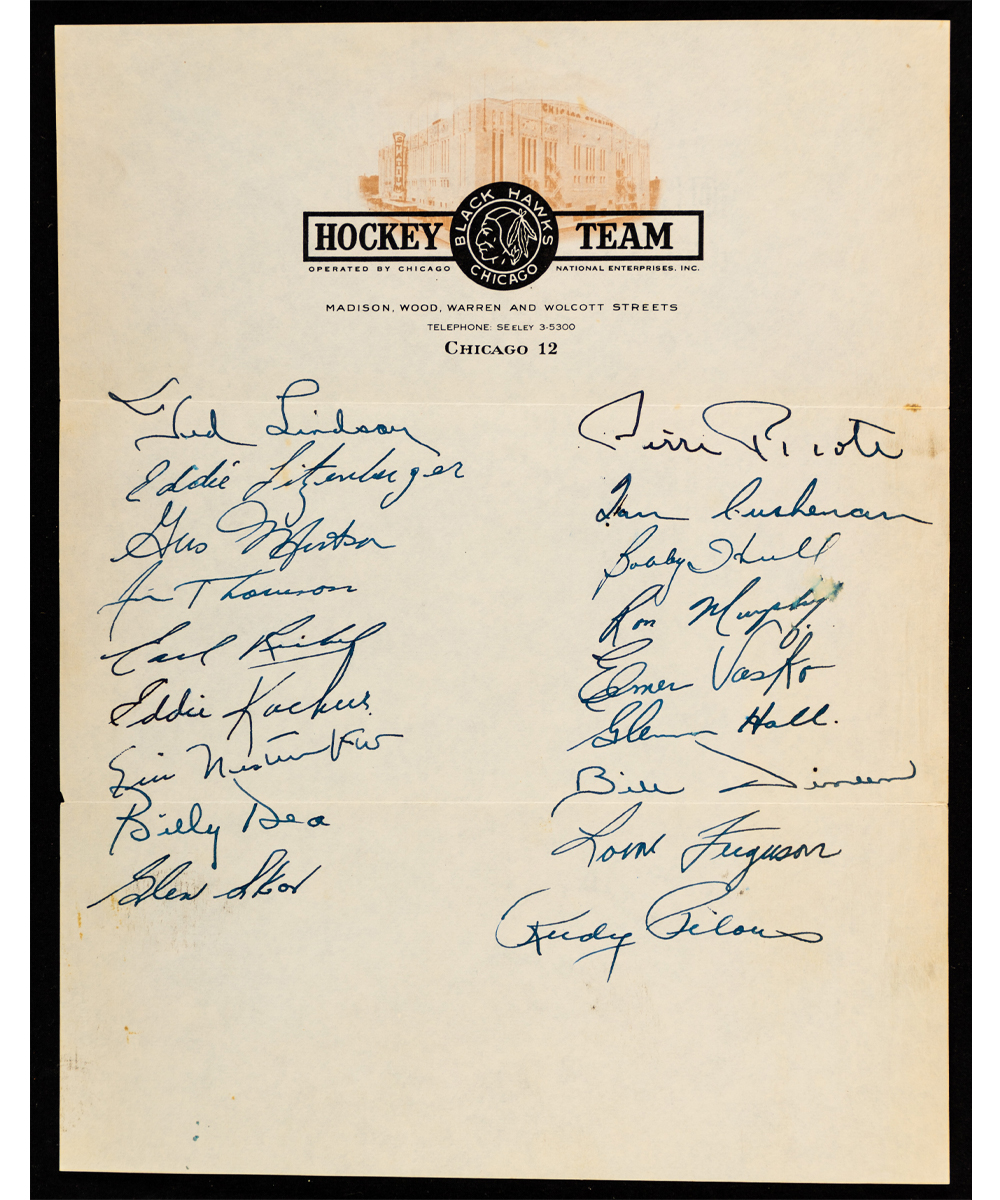 CHICAGO STADIUM
STADIUM
BLACK HAWKS
CHICAGO
HOCKEY TEAM
OPERATED BY CHICAGO NATIONAL ENTERPRISES, INC.
MADISON, WOOD, WARREN AND WOLCOTT STREETS
TELEPHONE: SEELEY 3-5300
CHICAGO 12
Ted Lindsay
Eddie Litzenberger
Gus Mortson
Jim Thomson
Earl Reibel
Eddie Kachur
Eric Nesterenko
Billy Dea
Glen Skov
Pierre Pilote
Ian Cushenan
Bobby Hull
Ron Murphy
Elmer Vasko
Glenn Hall.
Bill Dineen
Lorne Ferguson
Rudy Pilous